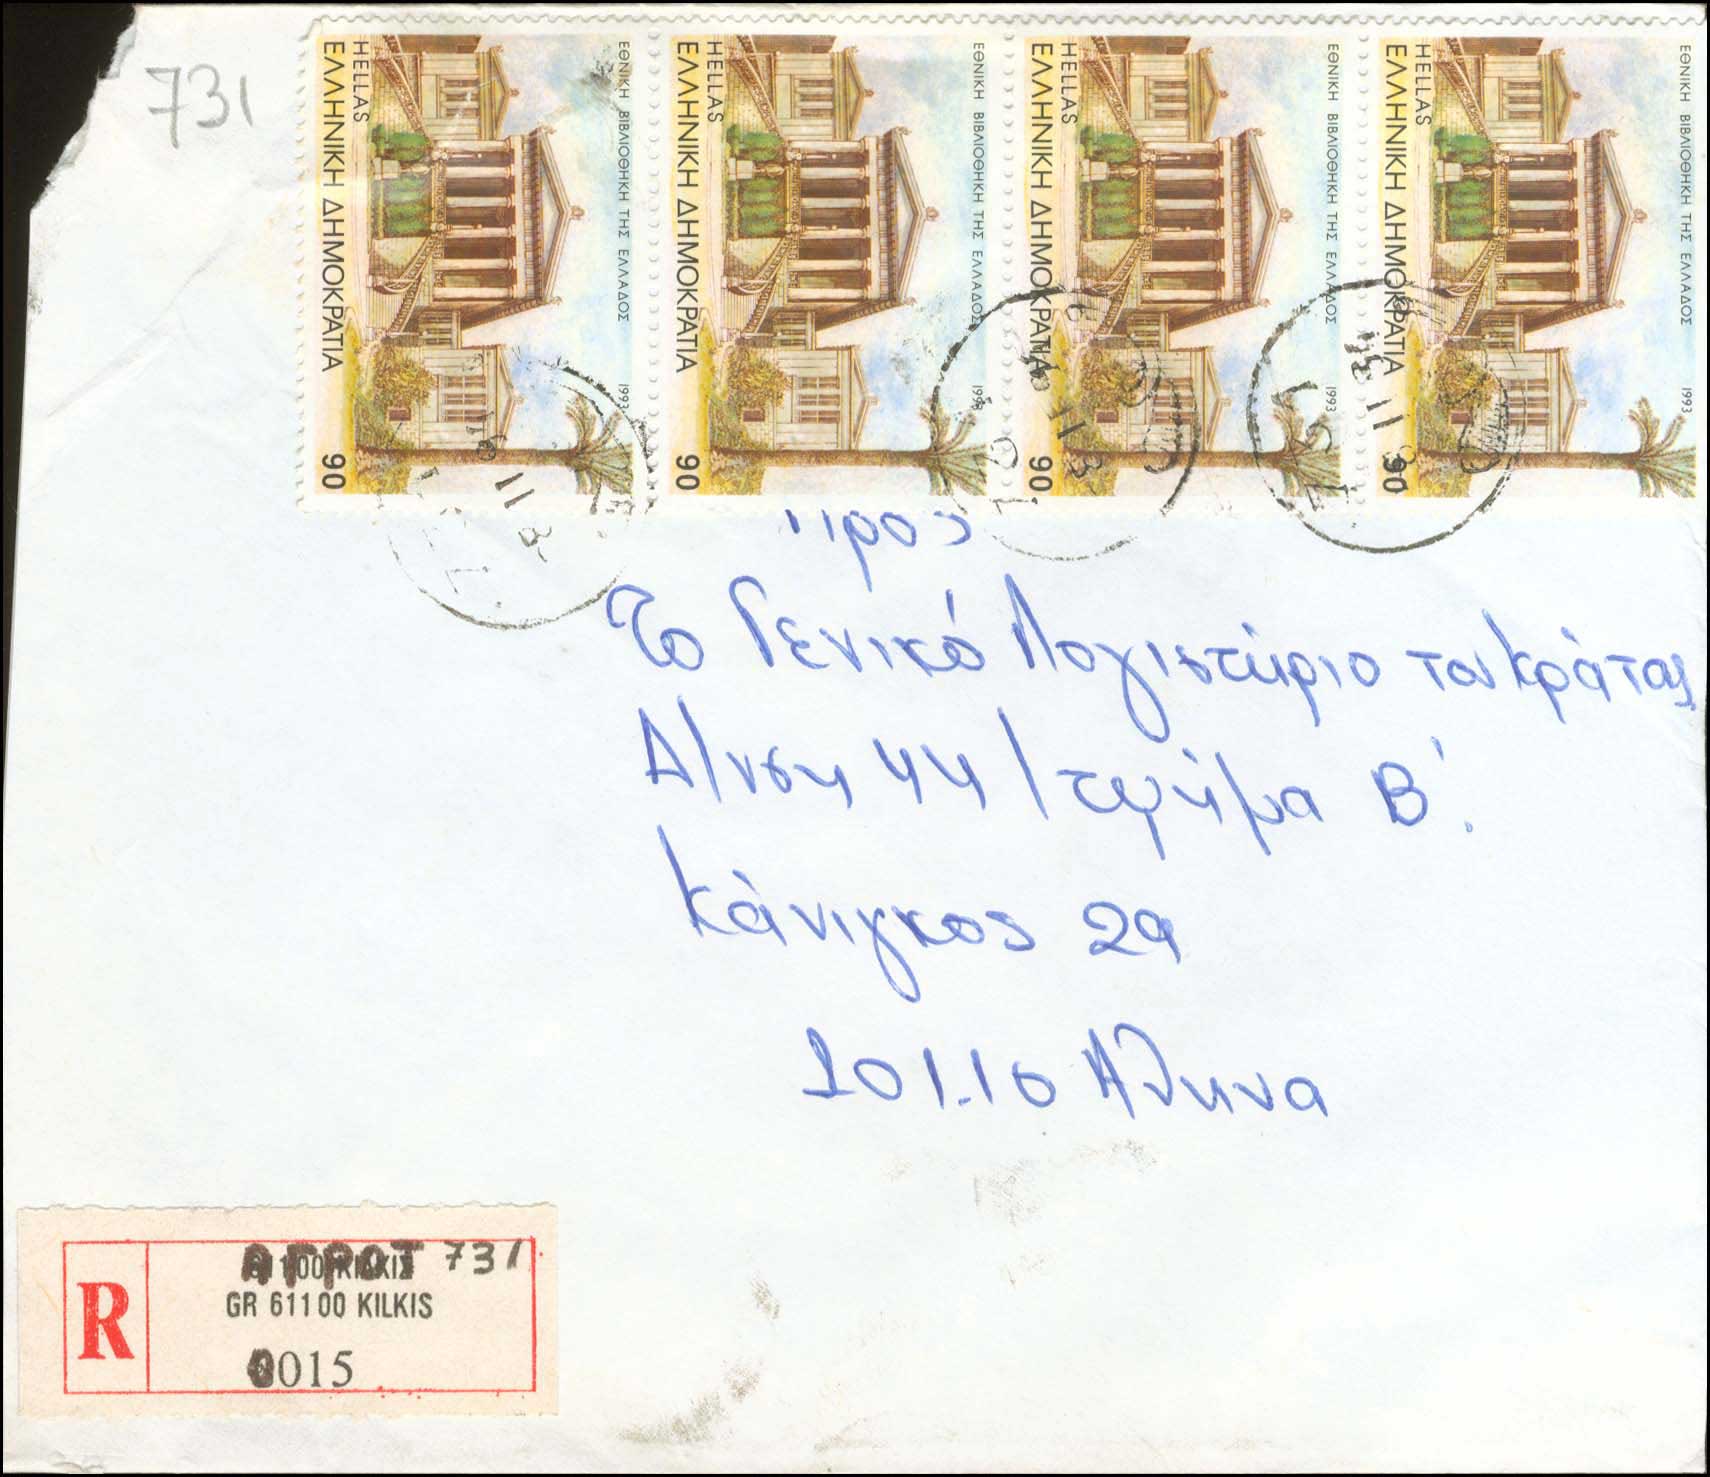 731
ΕΘΝΙΚΗ ΒΙΒΛΙΟΘΗΚΗ ΤΗΣ ΕΛΛΑΔΟΣ 1993
HELLAS
ΕΛΛΗΝΙΚΗ ΔΗΜΟΚΡΑΤΙΑ 90
ΕΘΝΙΚΗ ΒΙΒΛΙΟΘΗΚΗ ΤΗΣ ΕΛΛΑΔΟΣ 1993
HELLAS
ΕΛΛΗΝΙΚΗ ΔΗΜΟΚΡΑΤΙΑ 90
ΕΘΝΙΚΗ ΒΙΒΛΙΟΘΗΚΗ ΤΗΣ ΕΛΛΑΔΟΣ 1993
HELLAS
ΕΛΛΗΝΙΚΗ ΔΗΜΟΚΡΑΤΙΑ 90
ΕΘΝΙΚΗ ΒΙΒΛΙΟΘΗΚΗ ΤΗΣ ΕΛΛΑΔΟΣ 1993
HELLAS
ΕΛΛΗΝΙΚΗ ΔΗΜΟΚΡΑΤΙΑ 90
Προς
Το Γενικό Λογιστήριο του Κράτους
Δ/νση 44/τμήμα Β'.
Κάνιγκος 29
101.10 Αθηνα
R
ΑΓΡΟΤ 731
GR 61100 KILKIS
0015